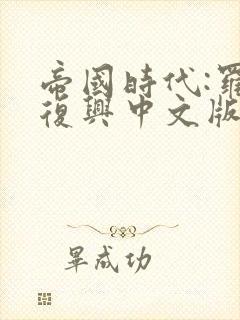 帝國時代:羅
復興中文版
畢成功